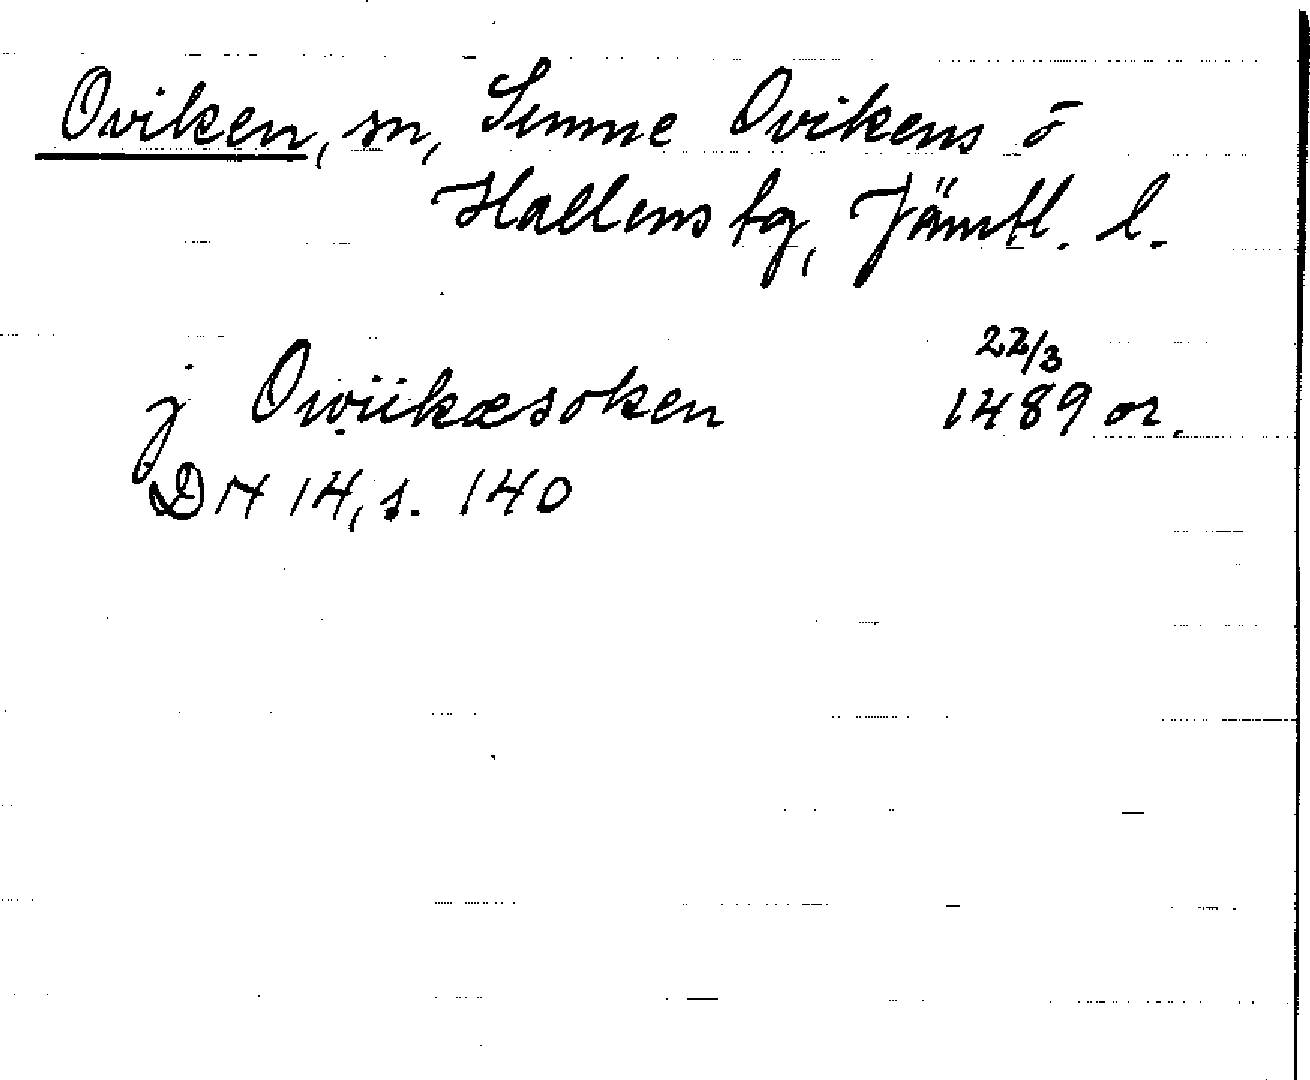 Oviken, sn, Sunne Ovikens o
Hallens tg, Jämtl. l.
22/3
j Owiikæsoken 1489 or.
DN 14, s. 140